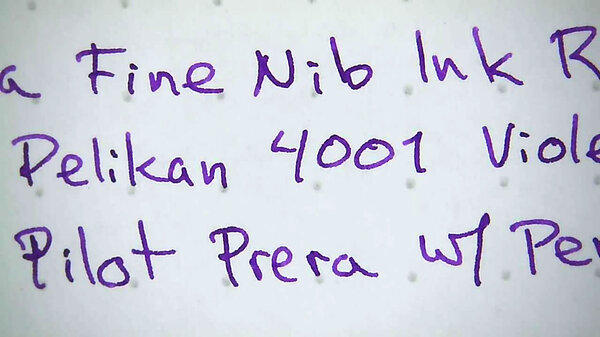 a Fine Nib Ink R
Pelikan 4001 Viole
Pilot Prera w/ Pen